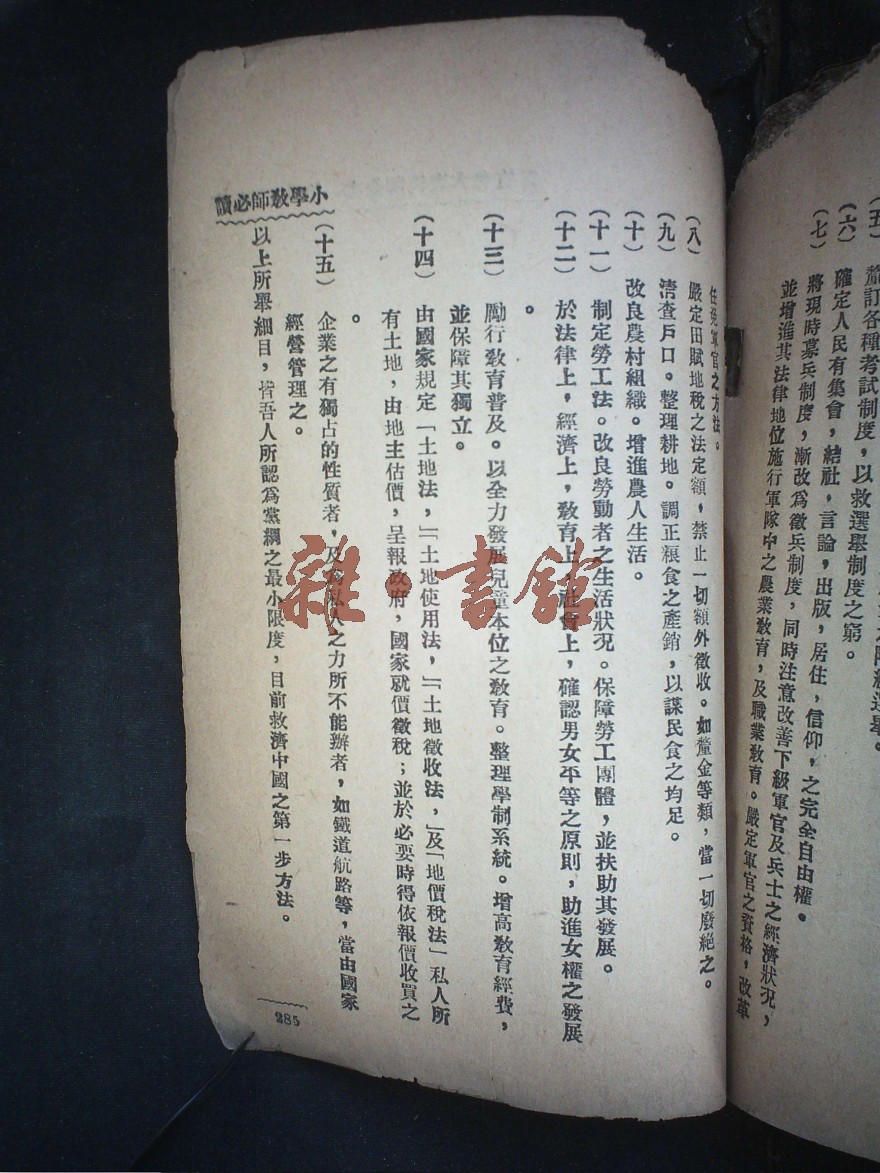 釐訂各種考試制度，以救選舉制度之窮。
（六）
確定人民有集會，結社，言論，出版，居住，信仰，之完全自由權。
（七）
將現時募兵制度，漸改爲徵兵制度，同時注意改善下級軍官及兵士之經濟狀況，
並增進其法律地位施行軍隊中之農業敎育，及職業敎育。嚴定軍官之資格，改革
任免軍官之方法。
（八）
嚴定田賦地稅之法定額，禁止一切額外徵收。如釐金等類，當一切廢絕之。
（九）
淸查戶口。整理耕地。調正粮食之產銷，以謀民食之均足。
（十）
改良農村組織。增進農人生活。
（十一）
制定勞工法。改良勞動者之生活狀况。保障勞工團體，並扶助其發展。
（十二）
於法律上，經濟上，敎育上，社會上，確認男女平等之原則，助進女權之發展
。
（十三）
勵行敎育普及。以全力發展兒童本位之敎育。整理學制系統。增高敎育經費，
並保障其獨立。
（十四）
由國家規定「土地法，」「土地使用法，」「土地徵收法，」及「地價稅法」私人所
有土地，由地主估價，呈報政府，國家就價徵稅；並於必要時得依報價收買之
。
（十五）
企業之有獨占的性質者，及爲私人之力所不能辦者，如鐵道航路等，當由國家
經營管理之。
以上所舉細目，皆吾人所認爲黨綱之最小限度，目前救濟中國之第一步方法。
小學敎師必讀
285
雜·書館